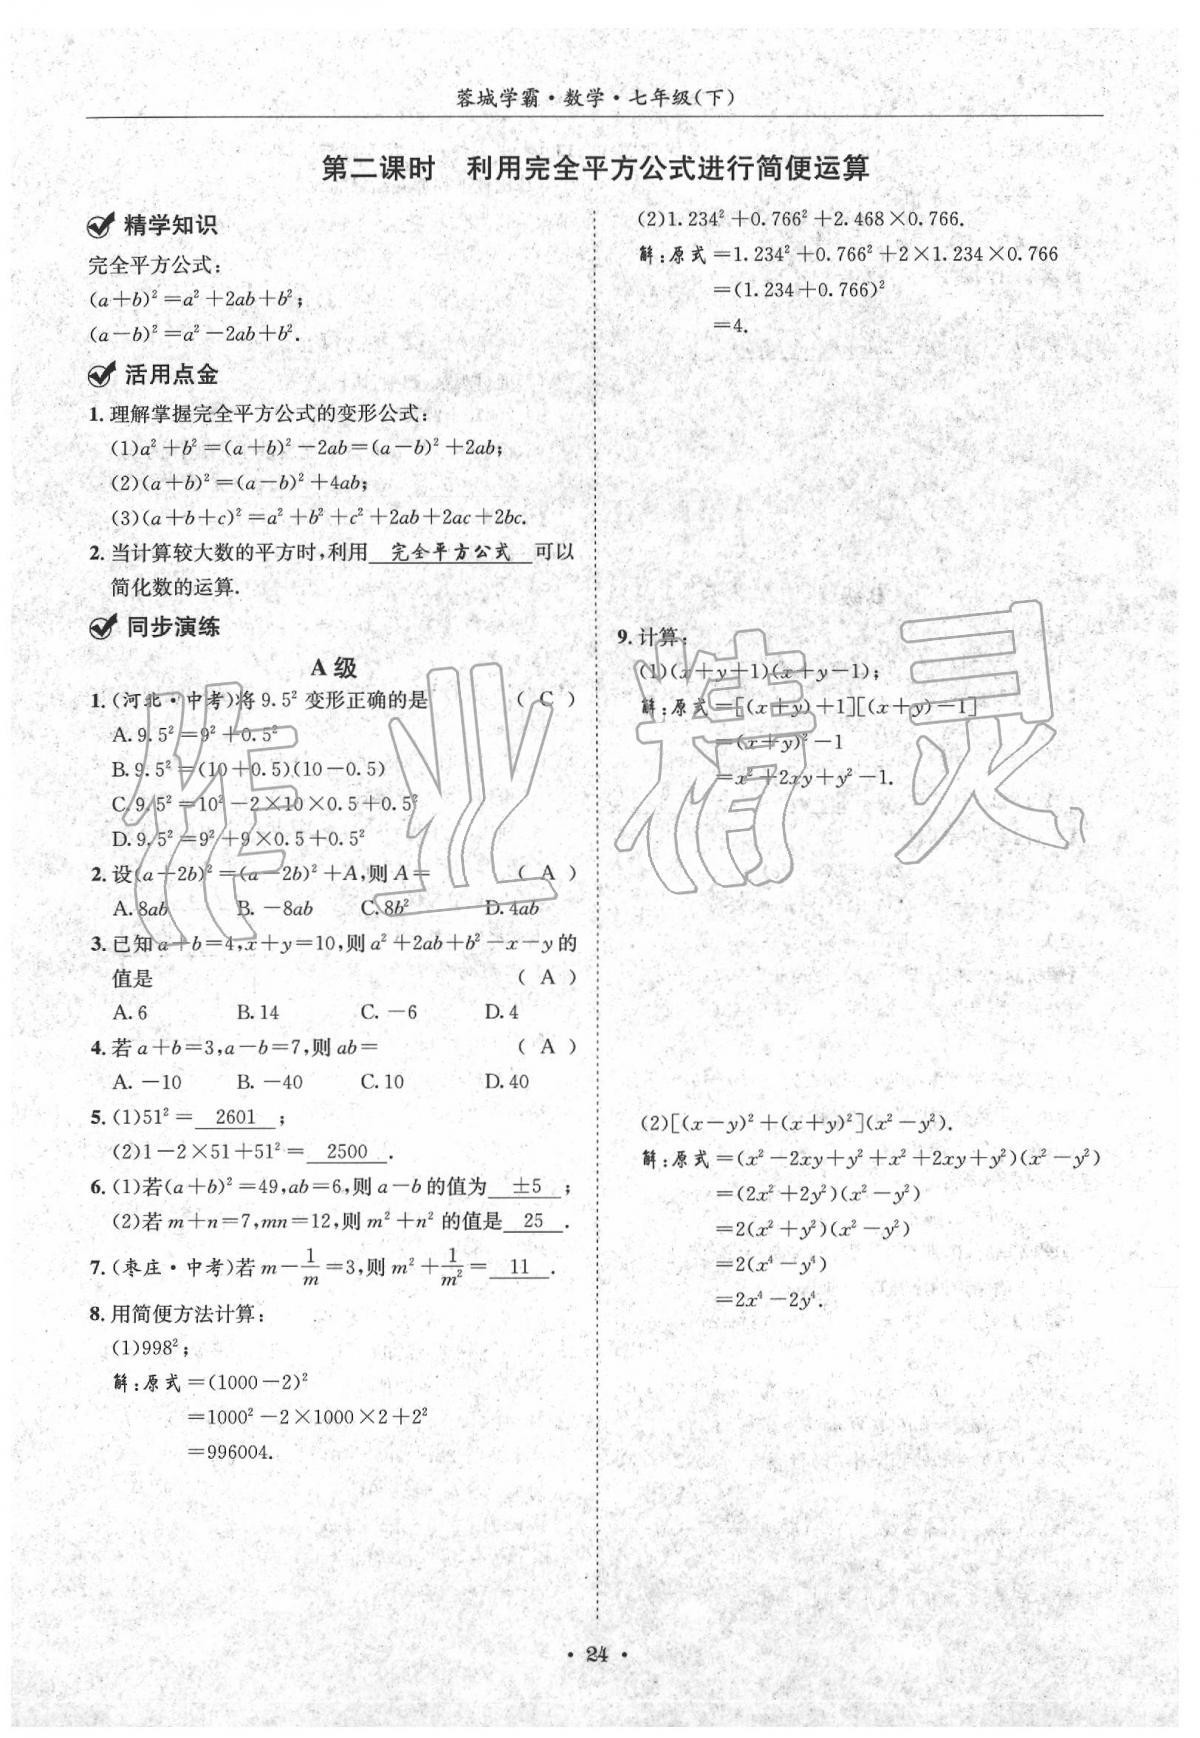 蓉城学霸·数学·七年级(下)
第二课时 利用完全平方公式进行简便运算
精学知识
完全平方公式:
(a+b)²=a²+2ab+b²;
(a-b)²=a²-2ab+b².
活用点金
1. 理解掌握完全平方公式的变形公式:
(1)a²+b²=(a+b)²-2ab=(a-b)²+2ab;
(2)(a+b)²=(a-b)²+4ab;
(3)(a+b+c)²=a²+b²+c²+2ab+2ac+2bc.
2. 当计算较大数的平方时,利用 完全平方公式 可以
简化数的运算.
同步演练
A 级
1. (河北·中考)将 9.5² 变形正确的是 ( C )
A. 9.5²=9²+0.5²
B. 9.5²=(10+0.5)(10-0.5)
C. 9.5²=10²-2×10×0.5+0.5²
D. 9.5²=9²+9×0.5+0.5²
2. 设(a+2b)²=(a-2b)²+A,则 A= ( A )
A. 8ab B. -8ab C. 8b² D. 4ab
3. 已知 a+b=4,x+y=10,则 a²+2ab+b²-x-y 的
值是 ( A )
A. 6 B. 14 C. -6 D. 4
4. 若 a+b=3,a-b=7,则 ab= ( A )
A. -10 B. -40 C. 10 D. 40
5. (1)51²= 2601 ;
(2)1-2×51+51²= 2500 .
6. (1)若(a+b)²=49,ab=6,则 a-b 的值为 ±5 ;
(2)若 m+n=7,mn=12,则 m²+n² 的值是 25 .
7. (枣庄·中考)若 m-1/m=3,则 m²+1/m²= 11 .
8. 用简便方法计算:
(1)998²;
解:原式=(1000-2)²
=1000²-2×1000×2+2²
=996004.
(2)1.234²+0.766²+2.468×0.766.
解:原式=1.234²+0.766²+2×1.234×0.766
=(1.234+0.766)²
=4.
9. 计算:
(1)(x+y+1)(x+y-1);
解:原式=[(x+y)+1][(x+y)-1]
=(x+y)²-1
=x²+2xy+y²-1.
(2)[(x-y)²+(x+y)²](x²-y²).
解:原式=(x²-2xy+y²+x²+2xy+y²)(x²-y²)
=(2x²+2y²)(x²-y²)
=2(x²+y²)(x²-y²)
=2(x⁴-y⁴)
=2x⁴-2y⁴.
作业精灵
· 24 ·